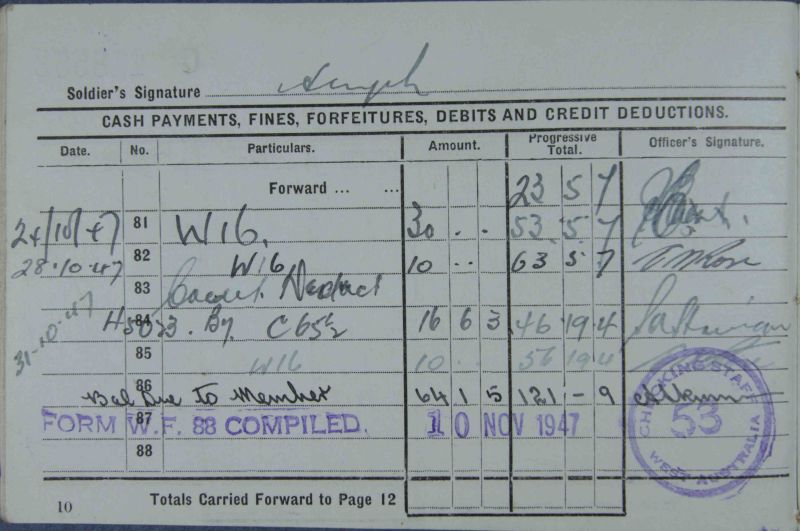 Soldier's Signature
CASH PAYMENTS, FINES, FORFEITURES, DEBITS AND CREDIT DEDUCTIONS.
Date. No. Particulars. Amount. Progressive Total. Officer's Signature.
Forward ... ... 23 5 7
24/10/47 81 W16. 30 . . 53 5 7
28.10.47 82 W16 10 . . 63 5 7
83
31-10-47 84 By 16 6 3 46 19 4
85 W16 10 . . 56 19 4
86 Bal Due to Member 64 1 5 121 - 9
87 FORM W.F. 88 COMPILED. 10 NOV 1947
88
CHECKING STAFF
53
WEST AUSTRALIA
10 Totals Carried Forward to Page 12